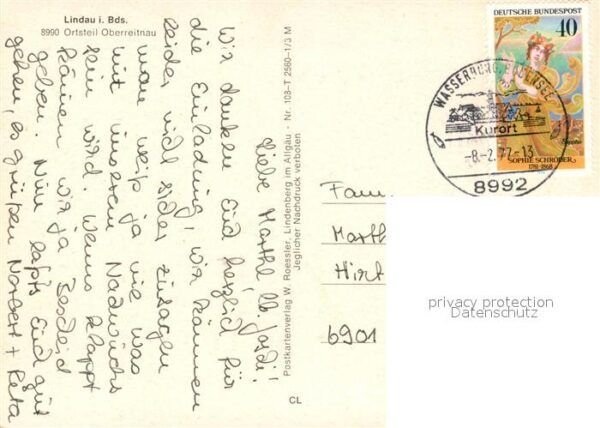 Lindau i. Bds.
8990 Ortsteil Oberreitnau
Liebe Marthl, lb. Jordi!
Wir danken Euch herzlich für
die Einladung, wir können
leider nicht sicher zusagen
man weiß ja nie was
mit unserem Nachwuchs
sein wird. Wenns klappt
können wir ja Bescheid
geben. Nun laßts Euch gut
gehen, es grüßen Norbert + Reta
Postkartenverlag W. Roessler, Lindenberg im Allgäu - Nr. 108-T 2560-1/3 M
Jeglicher Nachdruck verboten
CL
DEUTSCHE BUNDESPOST
40
Sappho
SOPHIE SCHRÖDER
1781-1868
WASSERBURG, BODENSEE
Kurort
-8.-2.77-13
8992
Fam
Marth
Hint
6901
privacy protection
Datenschutz